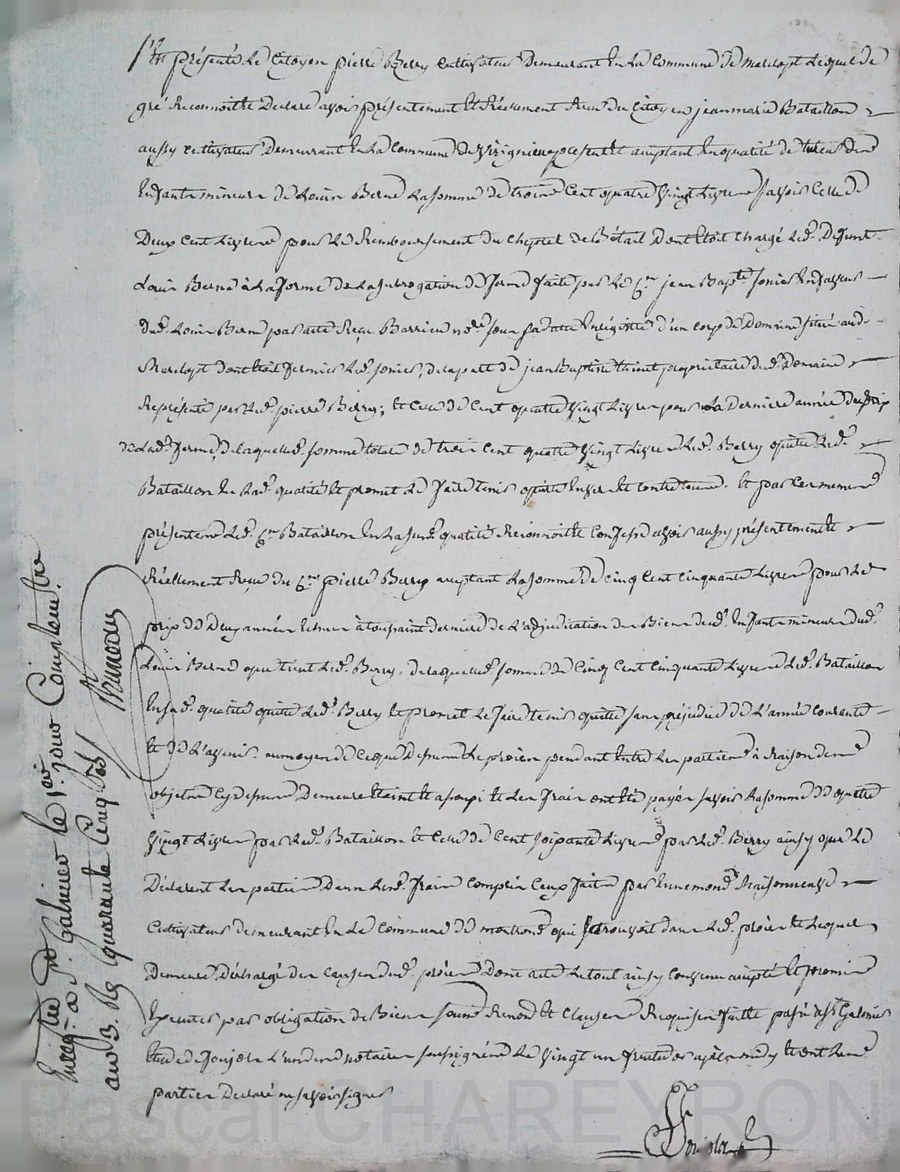 présenté Le Citoyen pierre Berry Cultivateur Demeurant En La Commune De Marclopt Lequel de
gré Reconnoit Et Declare avoir présentement Et Réellement Reçu du Citoyen jeanmarie Bataillon
aussy Cultivateur Demeurant En La Commune de présent Et aceptant En qualité de tuteur des
Enfants mineurs de Louis Berne La somme de trois Cent quatre Vingt Livres savoir Celle de
Deux Cent Livres pour Le Remboursement du Cheptel de Bétail Dont étoit Chargé Led. Deffunt
Louis Berne à La forme De La subrogation De ferme faite par Le Cen. jean Bapte. En faveur
dud. Louis Berne par acte Reçu Barrieu nore. sous sa date Enregistré d'un Corps De Domaine situé aud.
Marclopt dont étoit fermier Led. de La part de jean Baptiste propriétaire dud. Domaine
Représenté par Led. pierre Berry; Et Celle de Cent quatre Vingt Livres pour La Derniere année du prix
de Lad. ferme, de Laquelle somme totale de trois Cent quatre Vingt Livres Led. Berry quitte Led.
Bataillon En Lad. qualité Et promet Le faire tenir quitte Envers Et Contre tous. Et par Les memes
présentes Led. Cen. Bataillon En sa susd. qualité Reconnoit Et Confesse avoir aussy présentement Et
Réellement Reçu du Cen. pierre Berry aceptant La somme De Cinq Cent Cinquante Livres pour Le
prix de Deux années Echues à toussaint dernier de L'adjudication des Biens desd. Enfants mineurs dud.
Louis Berne que tient Led. Berry, de Laquelle somme de Cinq Cent Cinquante Livres Led. Bataillon
En sad. qualité quitte Led. Berry Et promet Le faire tenir quitte sans préjudice de L'année Courante
Et de L'avenir. au moyen de Ce que Dessus Le procès pendant Entre Les parties à Raison des
objets Cy dessus Demeure Eteint Et assoupi Et Les frais ont été payés savoir La somme De quatre
Vingt Livres par Led. Bataillon Et Celle de Cent soixante Livres par Led. Berry ainsy que Le
Déclarent Les parties Dans Lesd. frais Compris Ceux faits par Ennemond
Cultivateur demeurant En La Commune de Montrond qui se trouvoit dans Led. procès Et Lequel
Demeure Déchargé des Causes dud. procès Dont acte Le tout ainsy Convenu accepté Et promis
Executer par obligation de Biens soumis Renond. Et Clauses Requises fait Et passé à St. Galmier
Etude Et pardevant L'un des notaires soussignés Le Vingt un fructidor après midy Et ont Les
parties Declaré ne savoir signer
Enregistré à St. Galmier le 1er jour Complemre.
an 3. Rç quarante Cinq
Pascal CHAREYRON